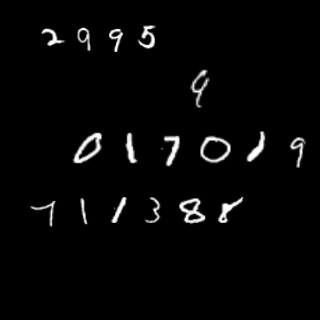 2995
9
017019
711388